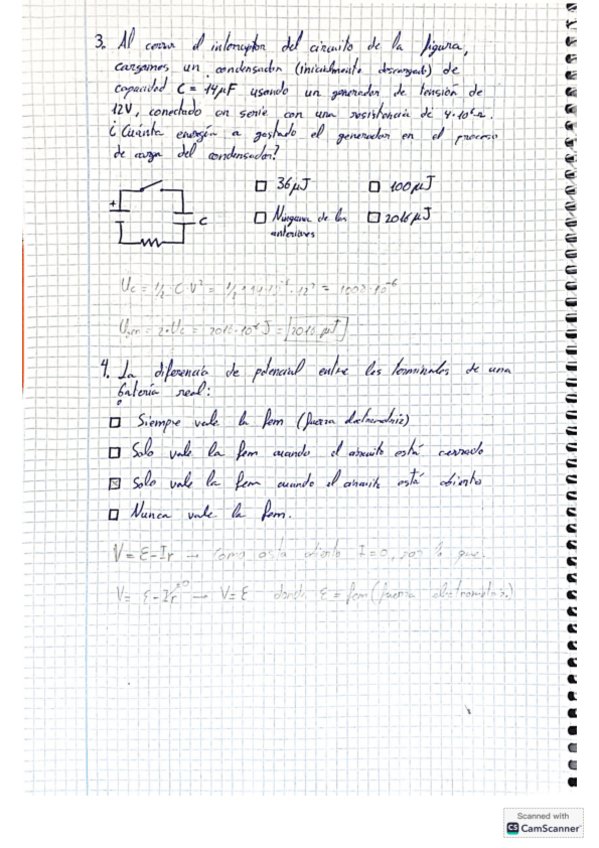 3. Al cerrar el interruptor del circuito de la figura,
cargamos un condensador (inicialmente descargado) de
capacidad C = 14μF usando un generador de tensión de
12V, conectado en serie con una resistencia de 4·10⁶Ω.
¿Cuánta energía a gastado el generador en el proceso
de carga del condensador?
☐ 36μJ ☐ 100μJ
☐ Ninguna de las anteriores ☐ 2016μJ
+
C
Uc = 1/2 · C · V² = 1/2 · 14·10⁻⁶ · 12² = 1008·10⁻⁶
Ugen = 2·Uc = 2016·10⁻⁶J = 2016 μJ
4. La diferencia de potencial entre los terminales de una
batería real:
☐ Siempre vale la fem (fuerza electromotriz)
☐ Solo vale la fem cuando el circuito está cerrado
☒ Solo vale la fem cuando el circuito está abierto
☐ Nunca vale la fem.
V = ε - Ir → Como está abierto I = 0, por lo que:
V = ε - Ir⁰ → V = ε donde ε = fem (fuerza electromotriz)
Scanned with
CS CamScanner